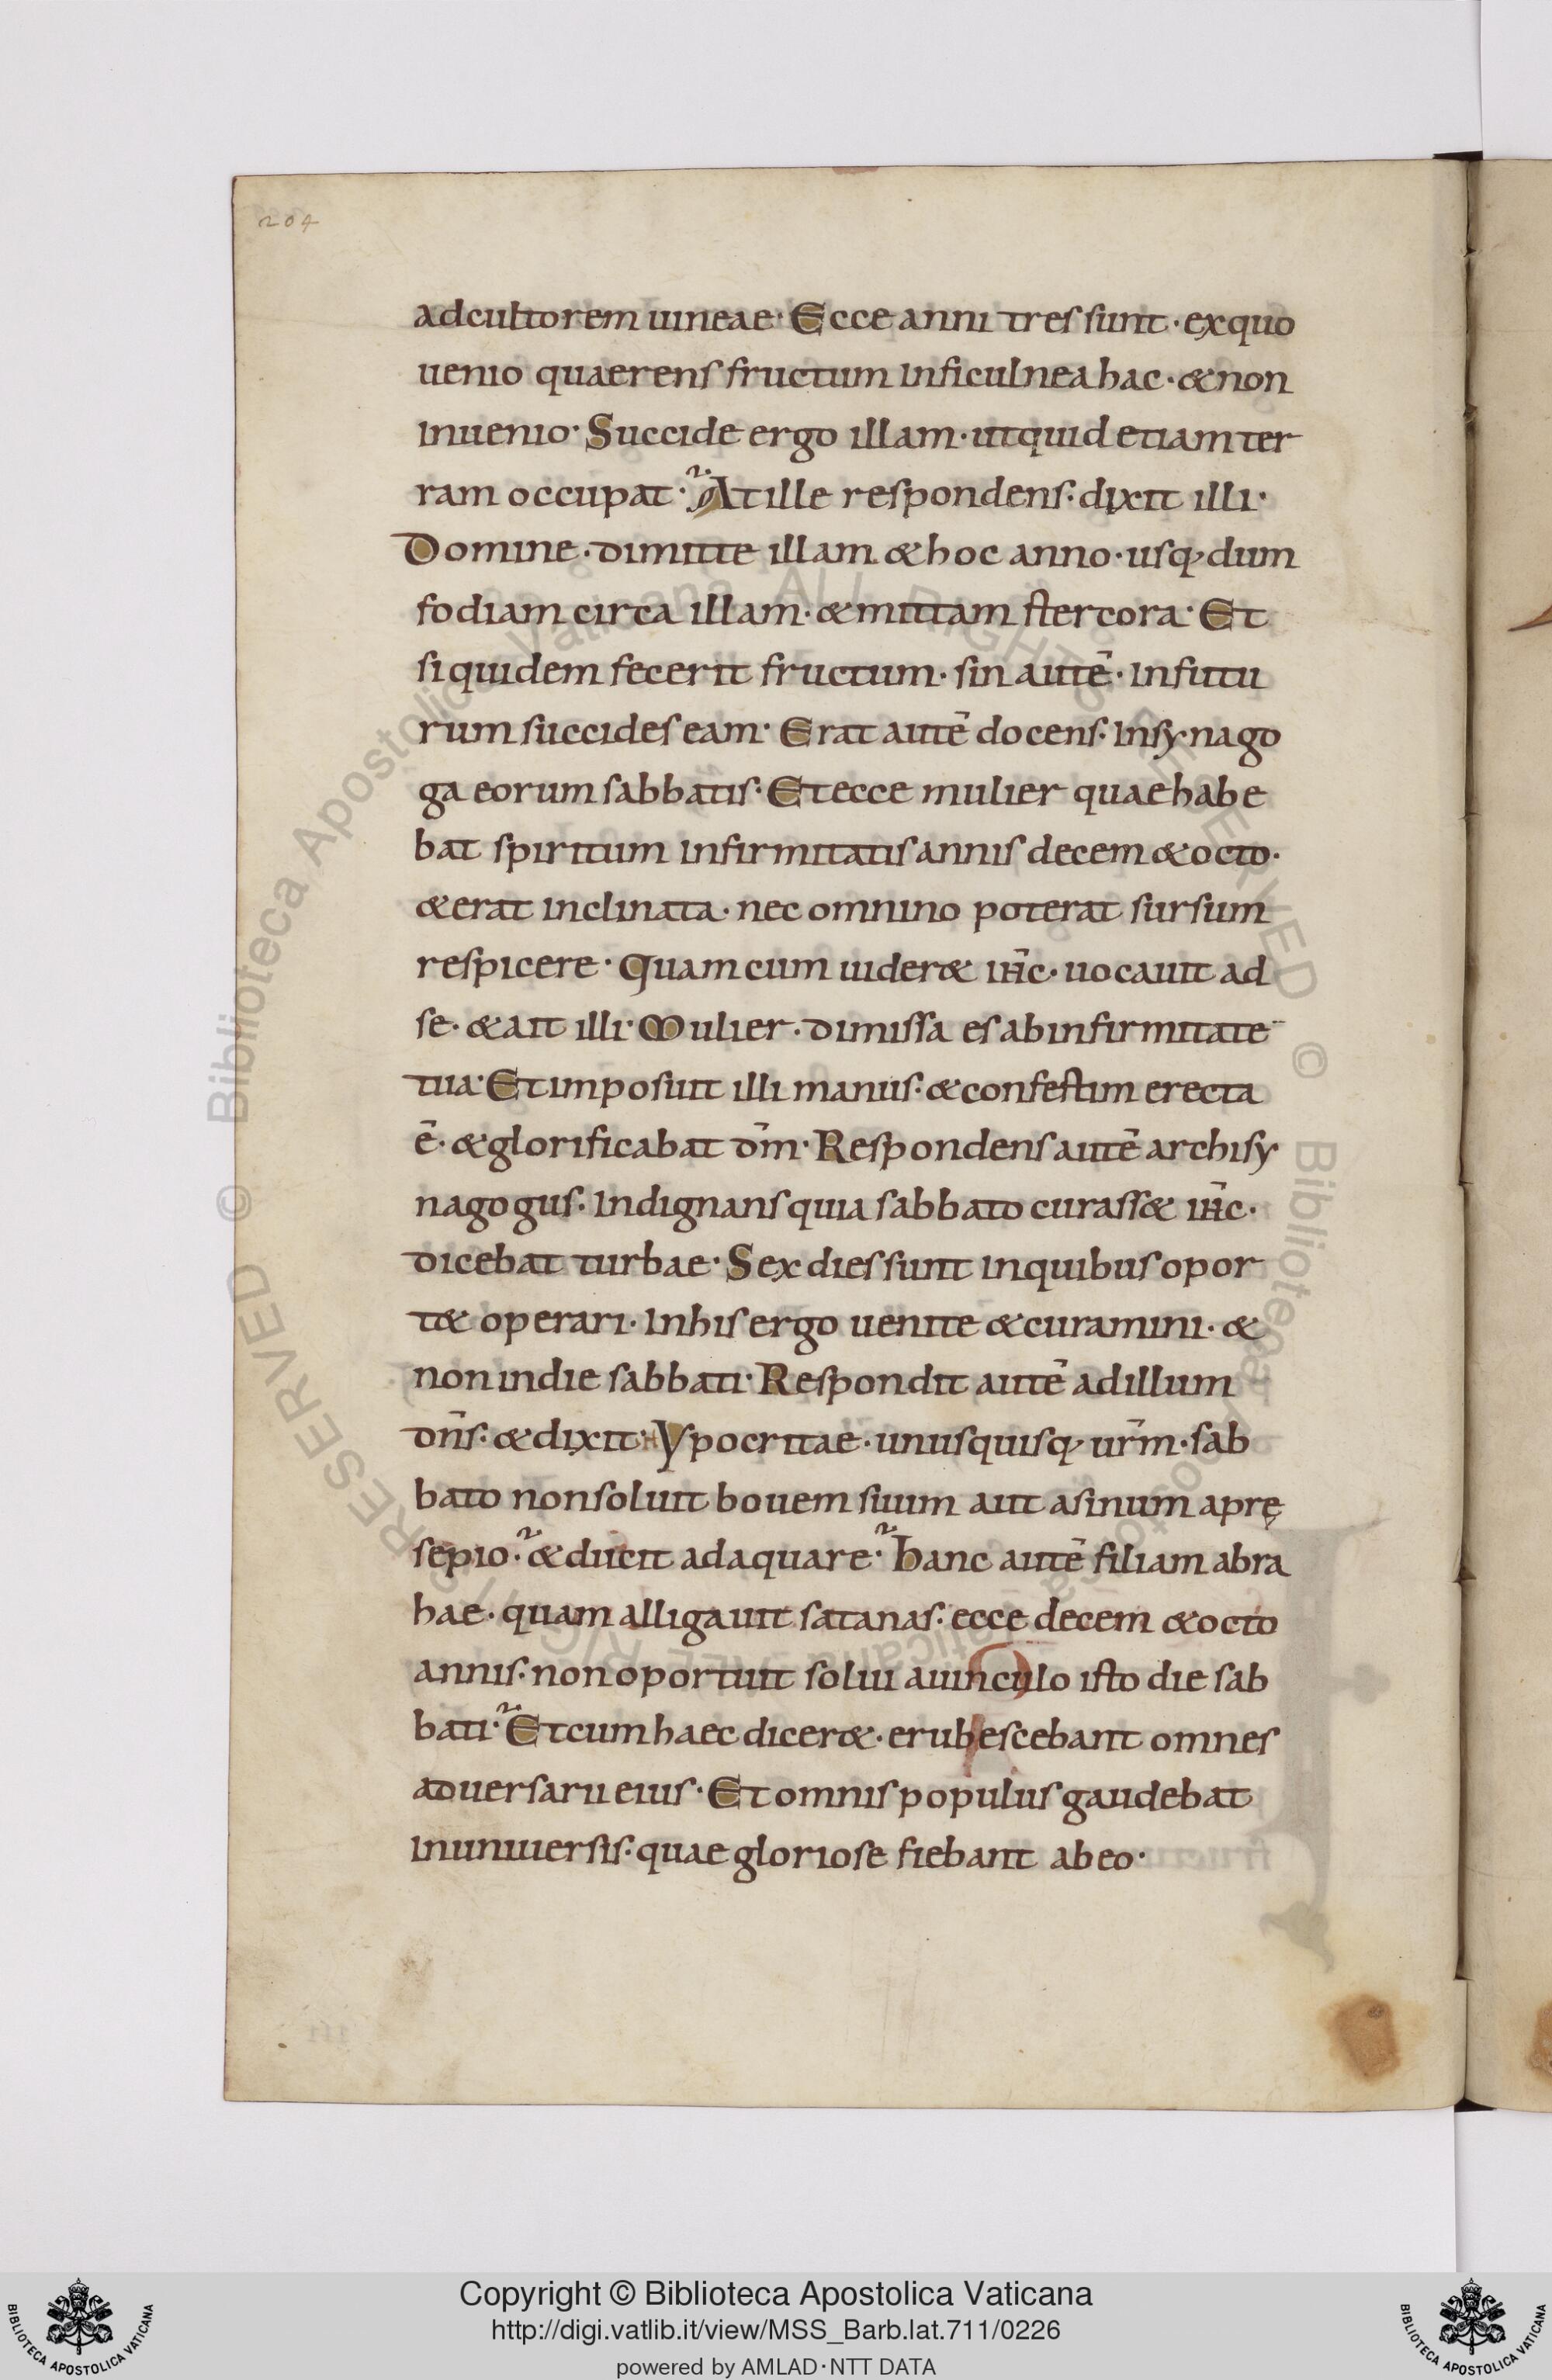 204
ad cultorem uineae· Ecce anni tres sunt· ex quo
uenio quaerens fructum in ficulnea hac· & non
inuenio· Succide ergo illam· ut quid etiam ter
ram occupat· At ille respondens· dixit illi·
Domine· dimitte illam & hoc anno· usq; dum
fodiam circa illam· & mittam stercora· Et
siquidem fecerit fructum· sin autē· in futu
rum succides eam· Erat autē docens· in synago
ga eorum sabbatis· Et ecce mulier quae habe
bat spiritum infirmitatis annis decem & octo·
& erat inclinata· nec omnino poterat sursum
respicere· Quam cum uider& ih̄c· uocauit ad
se· & ait illi· Mulier· dimissa es ab infirmitate
tua· Et imposuit illi manus· & confestim erecta
ē· & glorificabat dm̄· Respondens autē archisy
nagogus· indignans quia sabbato curass& ih̄c·
dicebat turbae· Sex dies sunt in quibus opor
t& operari· In his ergo uenite & curamini· &
non in die sabbati· Respondit autē ad illum
dn̄s· & dixit· Hypocritae· unusquisq; ur̄m· sab
bato non soluit bouem suum aut asinum a prę
sepio· & ducit adaquare· hanc autē filiam abra
hae· quam alligauit satanas· ecce decem & octo
annis· non oportuit solui a uinculo isto die sab
bati· Et cum haec dicer&· erubescebant omnes
aduersarii eius· Et omnis populus gaudebat
in uniuersis· quae gloriose fiebant ab eo·
© Biblioteca Apostolica Vaticana ALL RIGHTS RESERVED
© Biblioteca Apostolica Vaticana ALL RIGHTS RESERVED
BIBLIOTECA APOSTOLICA VATICANA
Copyright © Biblioteca Apostolica Vaticana
http://digi.vatlib.it/view/MSS_Barb.lat.711/0226
powered by AMLAD·NTT DATA
BIBLIOTECA APOSTOLICA VATICANA